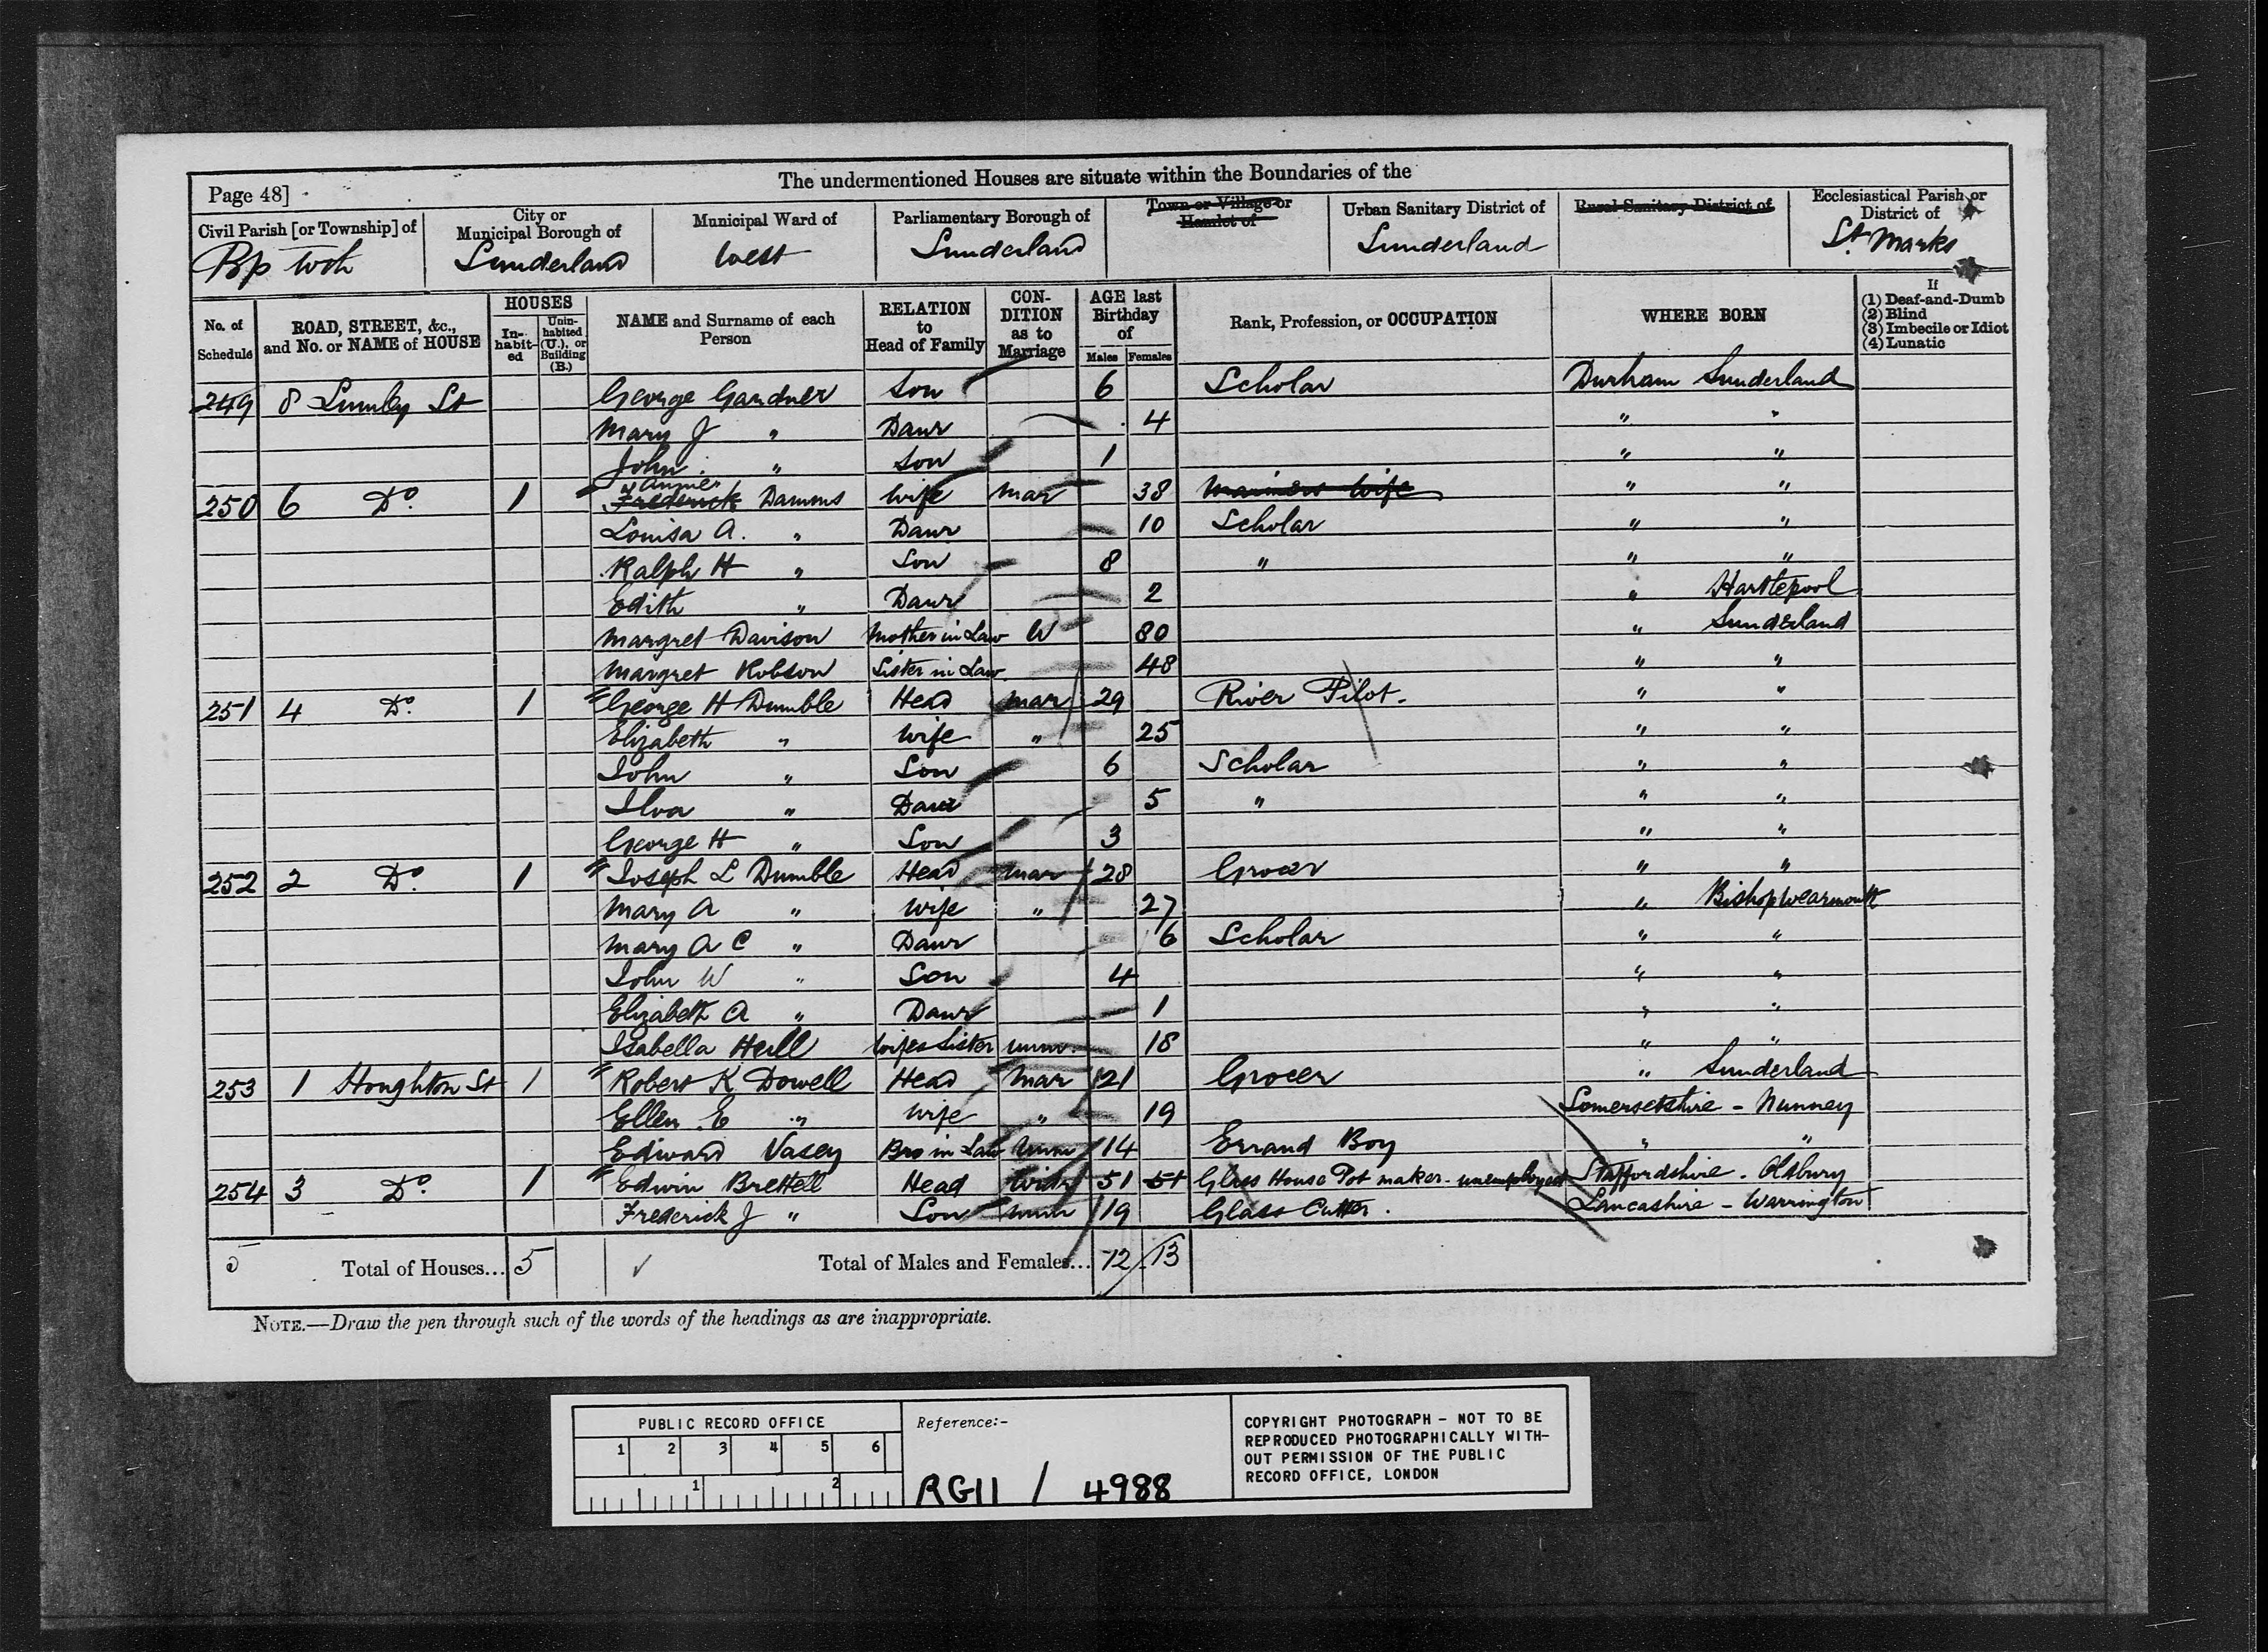 The undermentioned Houses are situate within the Boundaries of the
Page 48]
Civil Parish [or Township] of
City or Municipal Borough of
Municipal Ward of
Parliamentary Borough of
Town or Village or Hamlet of
Urban Sanitary District of
Rural Sanitary District of
Ecclesiastical Parish or District of
Bp Wth Sunderland West Sunderland Sunderland St Marks
No. of Schedule
ROAD, STREET, &c., and No. or NAME of HOUSE
HOUSES
In-habit-ed
Unin-habited (U.), or Building (B.)
NAME and Surname of each Person
RELATION to Head of Family
CON-DITION as to Marriage
AGE last Birthday of
Males Females
Rank, Profession, or OCCUPATION
WHERE BORN
If
(1) Deaf-and-Dumb
(2) Blind
(3) Imbecile or Idiot
(4) Lunatic
249 8 Lumley St George Gardner Son 6 Scholar Durham Sunderland
Mary J " Daur 4 " "
John " Son 1 " "
Annie
250 6 Do. 1 Frederick Damms Wife Mar 38 Mariners Wife " "
Louisa A. " Daur 10 Scholar " "
Ralph H " Son 8 " " "
Edith " Daur 2 " Hartlepool
Margret Davison Mother in Law W 80 " Sunderland
Margret Robson Sister in Law 48 " "
251 4 Do. 1 George H Dumble Head Mar 29 River Pilot. " "
Elizabeth " Wife " 25 " "
John " Son 6 Scholar " "
Ilva " Daur 5 " " "
George H " Son 3 " "
252 2 Do. 1 Joseph L Dumble Head Mar 28 Grocer " "
Mary A " Wife " 27 " Bishopwearmouth
Mary A C " Daur 6 Scholar " "
John W " Son 4 " "
Elizabeth A " Daur 1 " "
Isabella Hull Wifes Sister Unm. 18 " "
253 1 Houghton St 1 Robert K Dowell Head Mar 21 Grocer " Sunderland
Ellen E " Wife " 19 Somersetshire - Nunney
Edward Vasey Bro in Law Unm 14 Errand Boy " "
254 3 Do. 1 Edwin Brettell Head Widr 51 51 Glass House Pot maker - unemployed Staffordshire - Olsbury
Frederick J " Son Unm 19 Glass Cutter. Lancashire - Warrington
5 Total of Houses... 5 Total of Males and Females... 12 13
NOTE.—Draw the pen through such of the words of the headings as are inappropriate.
PUBLIC RECORD OFFICE
1 2 3 4 5 6
1 2
Reference:-
RG11 / 4988
COPYRIGHT PHOTOGRAPH - NOT TO BE
REPRODUCED PHOTOGRAPHICALLY WITH-
OUT PERMISSION OF THE PUBLIC
RECORD OFFICE, LONDON